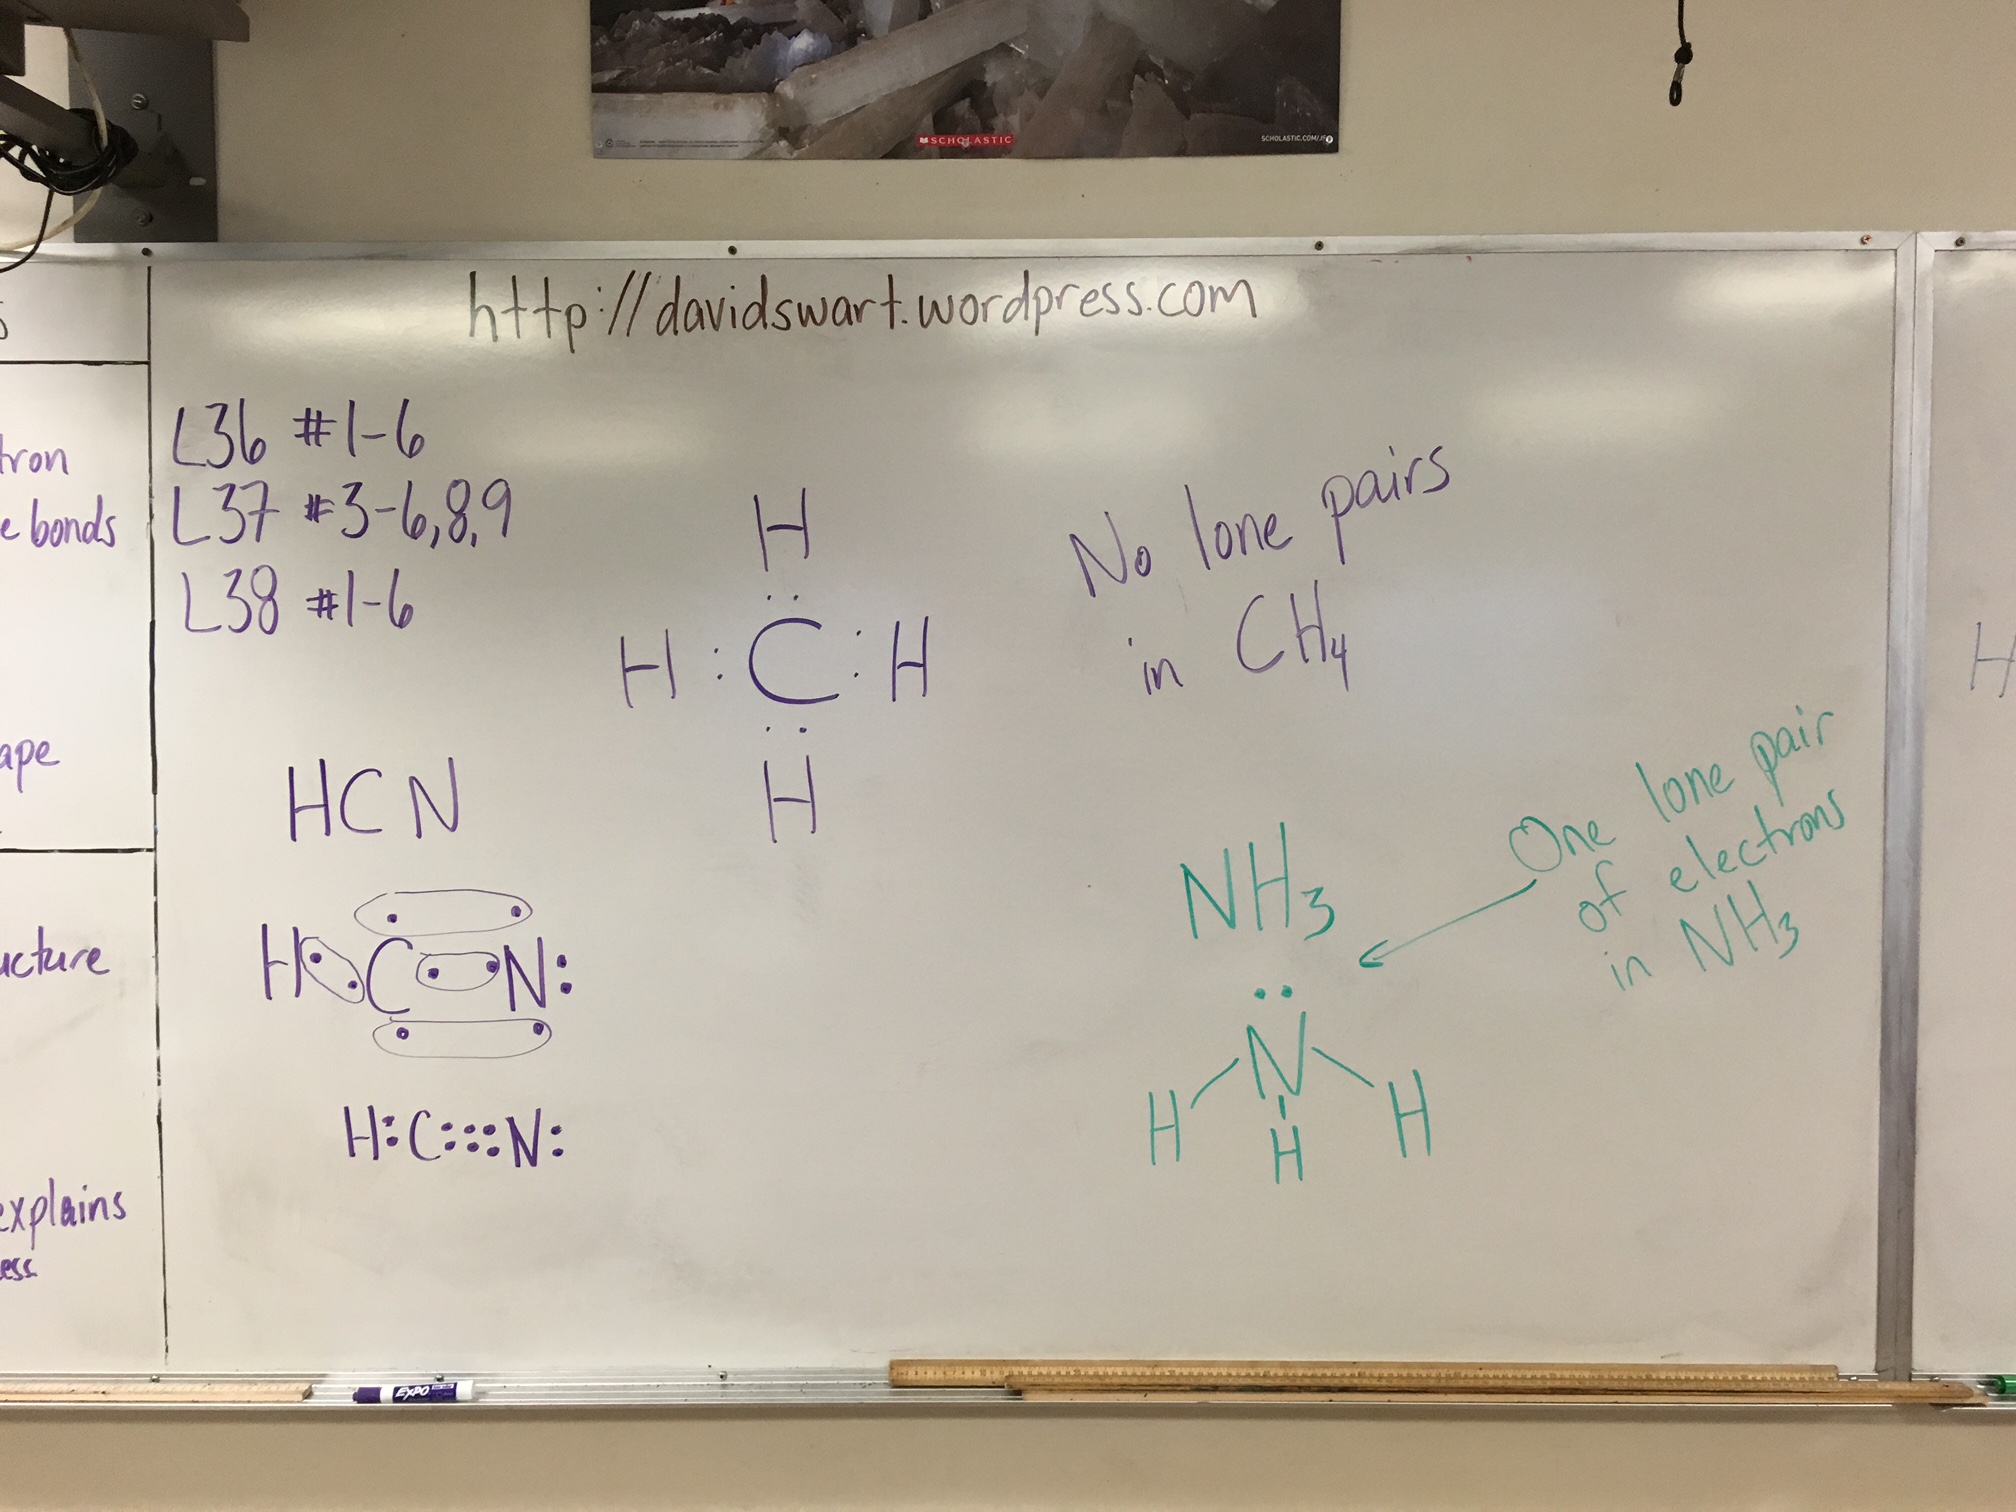 SCHOLASTIC
SCHOLASTIC.COM/
http://davidswart.wordpress.com
tron
e bonds
ape
ucture
explains
ess
L36 #1-6
L37 #3-6,8,9
L38 #1-6
H
H : C : H
H
No lone pairs
in CH4
HCN
H C N:
H:C:::N:
NH3
N
H H H
One lone pair
of electrons
in NH3
H
EXPO